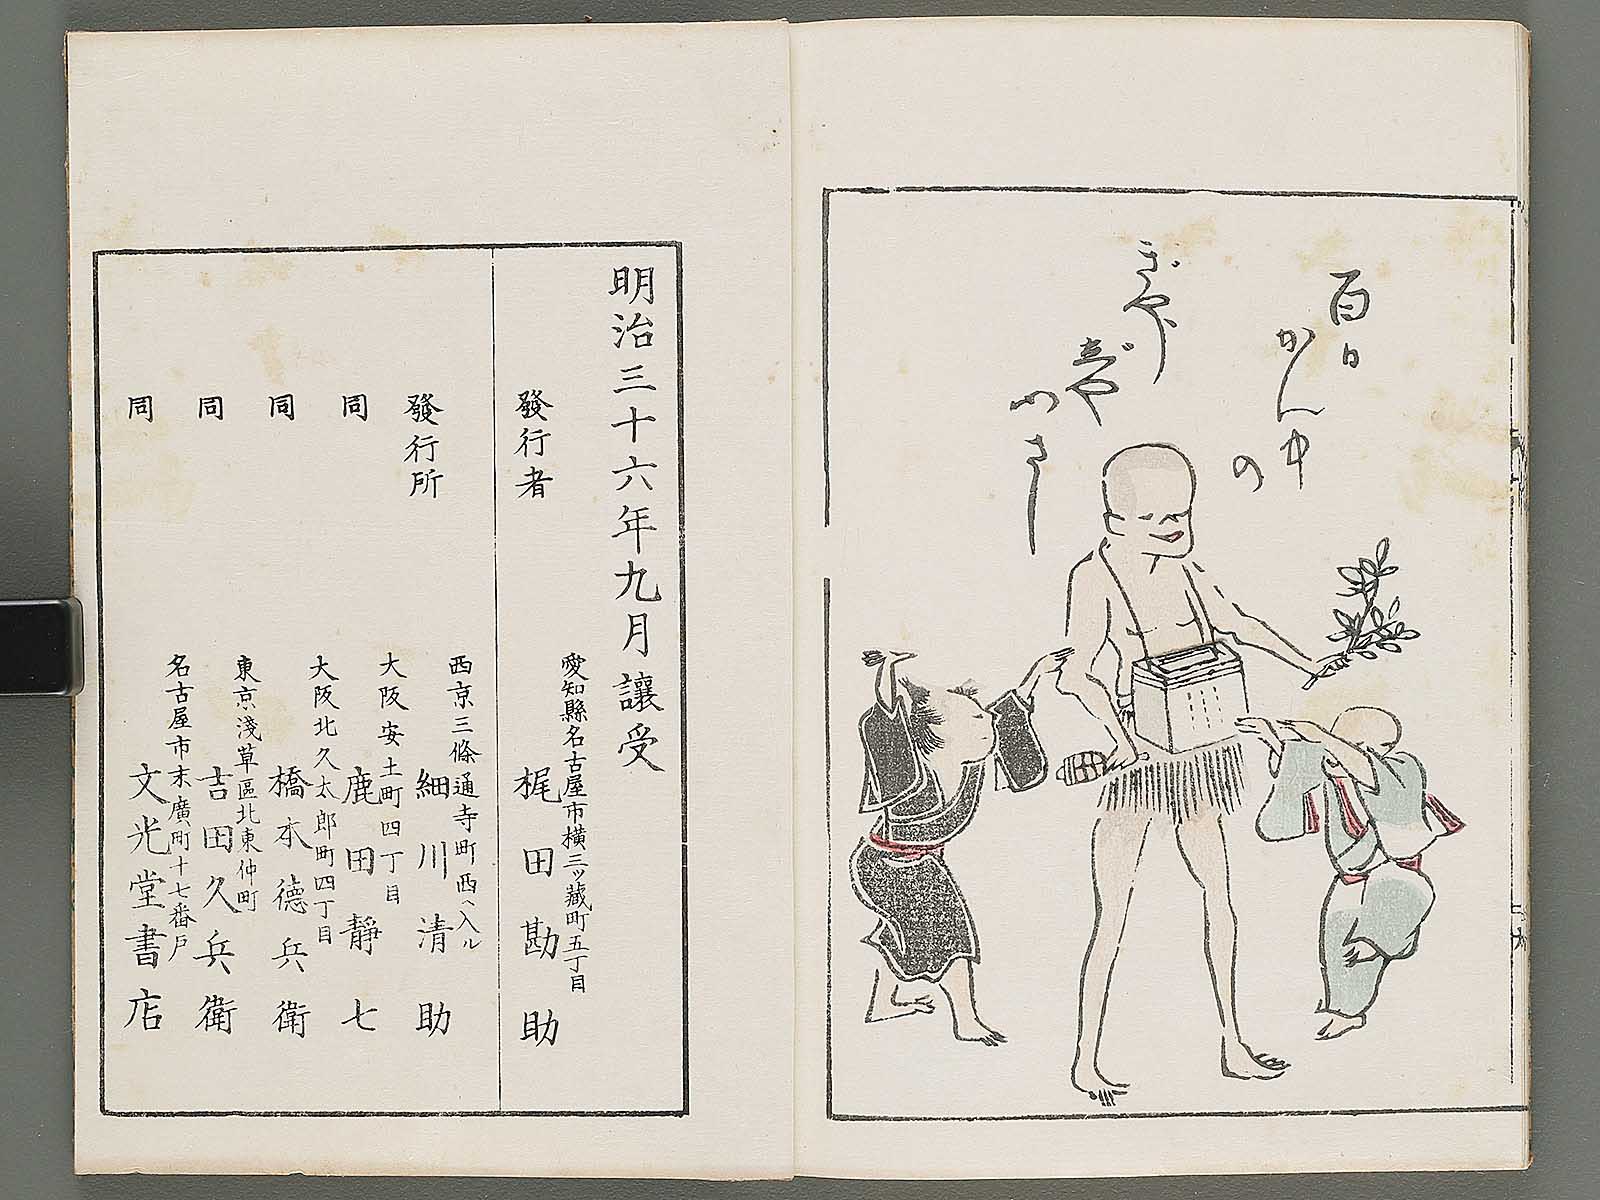 百日
かん中
の
ぎやう
じや
明治三十六年九月讓受
愛知縣名古屋市橫三ッ藏町五丁目
發行者 梶田勘助
西京三條通寺町西へ入ル
發行所 細川清助
大阪安土町四丁目
同 鹿田靜七
大阪北久太郎町四丁目
同 橋本德兵衛
東京淺草區北東仲町
同 吉田久兵衛
名古屋市末廣町十七番戶
同 文光堂書店